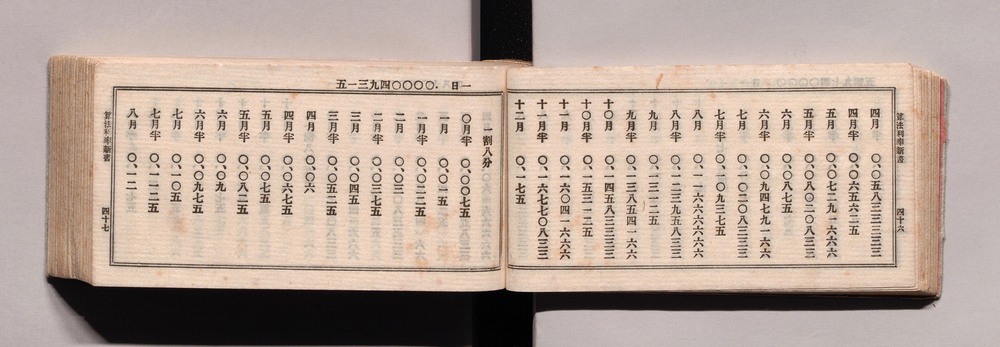 算法利率新書 四十六
四月 〇、〇五八三三三三三
四月半 〇、〇六五六二五
五月 〇、〇七二九一六六六
五月半 〇、〇八〇二〇八三三
六月 〇、〇八七五
六月半 〇、〇九四七九一六六
七月 〇、一〇二〇八三三三
七月半 〇、一〇九三七五
八月 〇、一一六六六六六六
八月半 〇、一二三九五八三三
九月 〇、一三一二五
九月半 〇、一三八五四一六六
十〇月 〇、一四五八三三三三
十〇月半 〇、一五三一二五
十一月 〇、一六〇四一六六六
十一月半 〇、一六七七〇八三三
十二月 〇、一七五
一日 〇、〇〇〇四九三一五
一割八分
〇月半 〇、〇〇七五
一月 〇、〇一五
一月半 〇、〇二二五
二月 〇、〇三
二月半 〇、〇三七五
三月 〇、〇四五
三月半 〇、〇五二五
四月 〇、〇六
四月半 〇、〇六七五
五月 〇、〇七五
五月半 〇、〇八二五
六月 〇、〇九
六月半 〇、〇九七五
七月 〇、一〇五
七月半 〇、一一二五
八月 〇、一二
算法利率新書 四十七